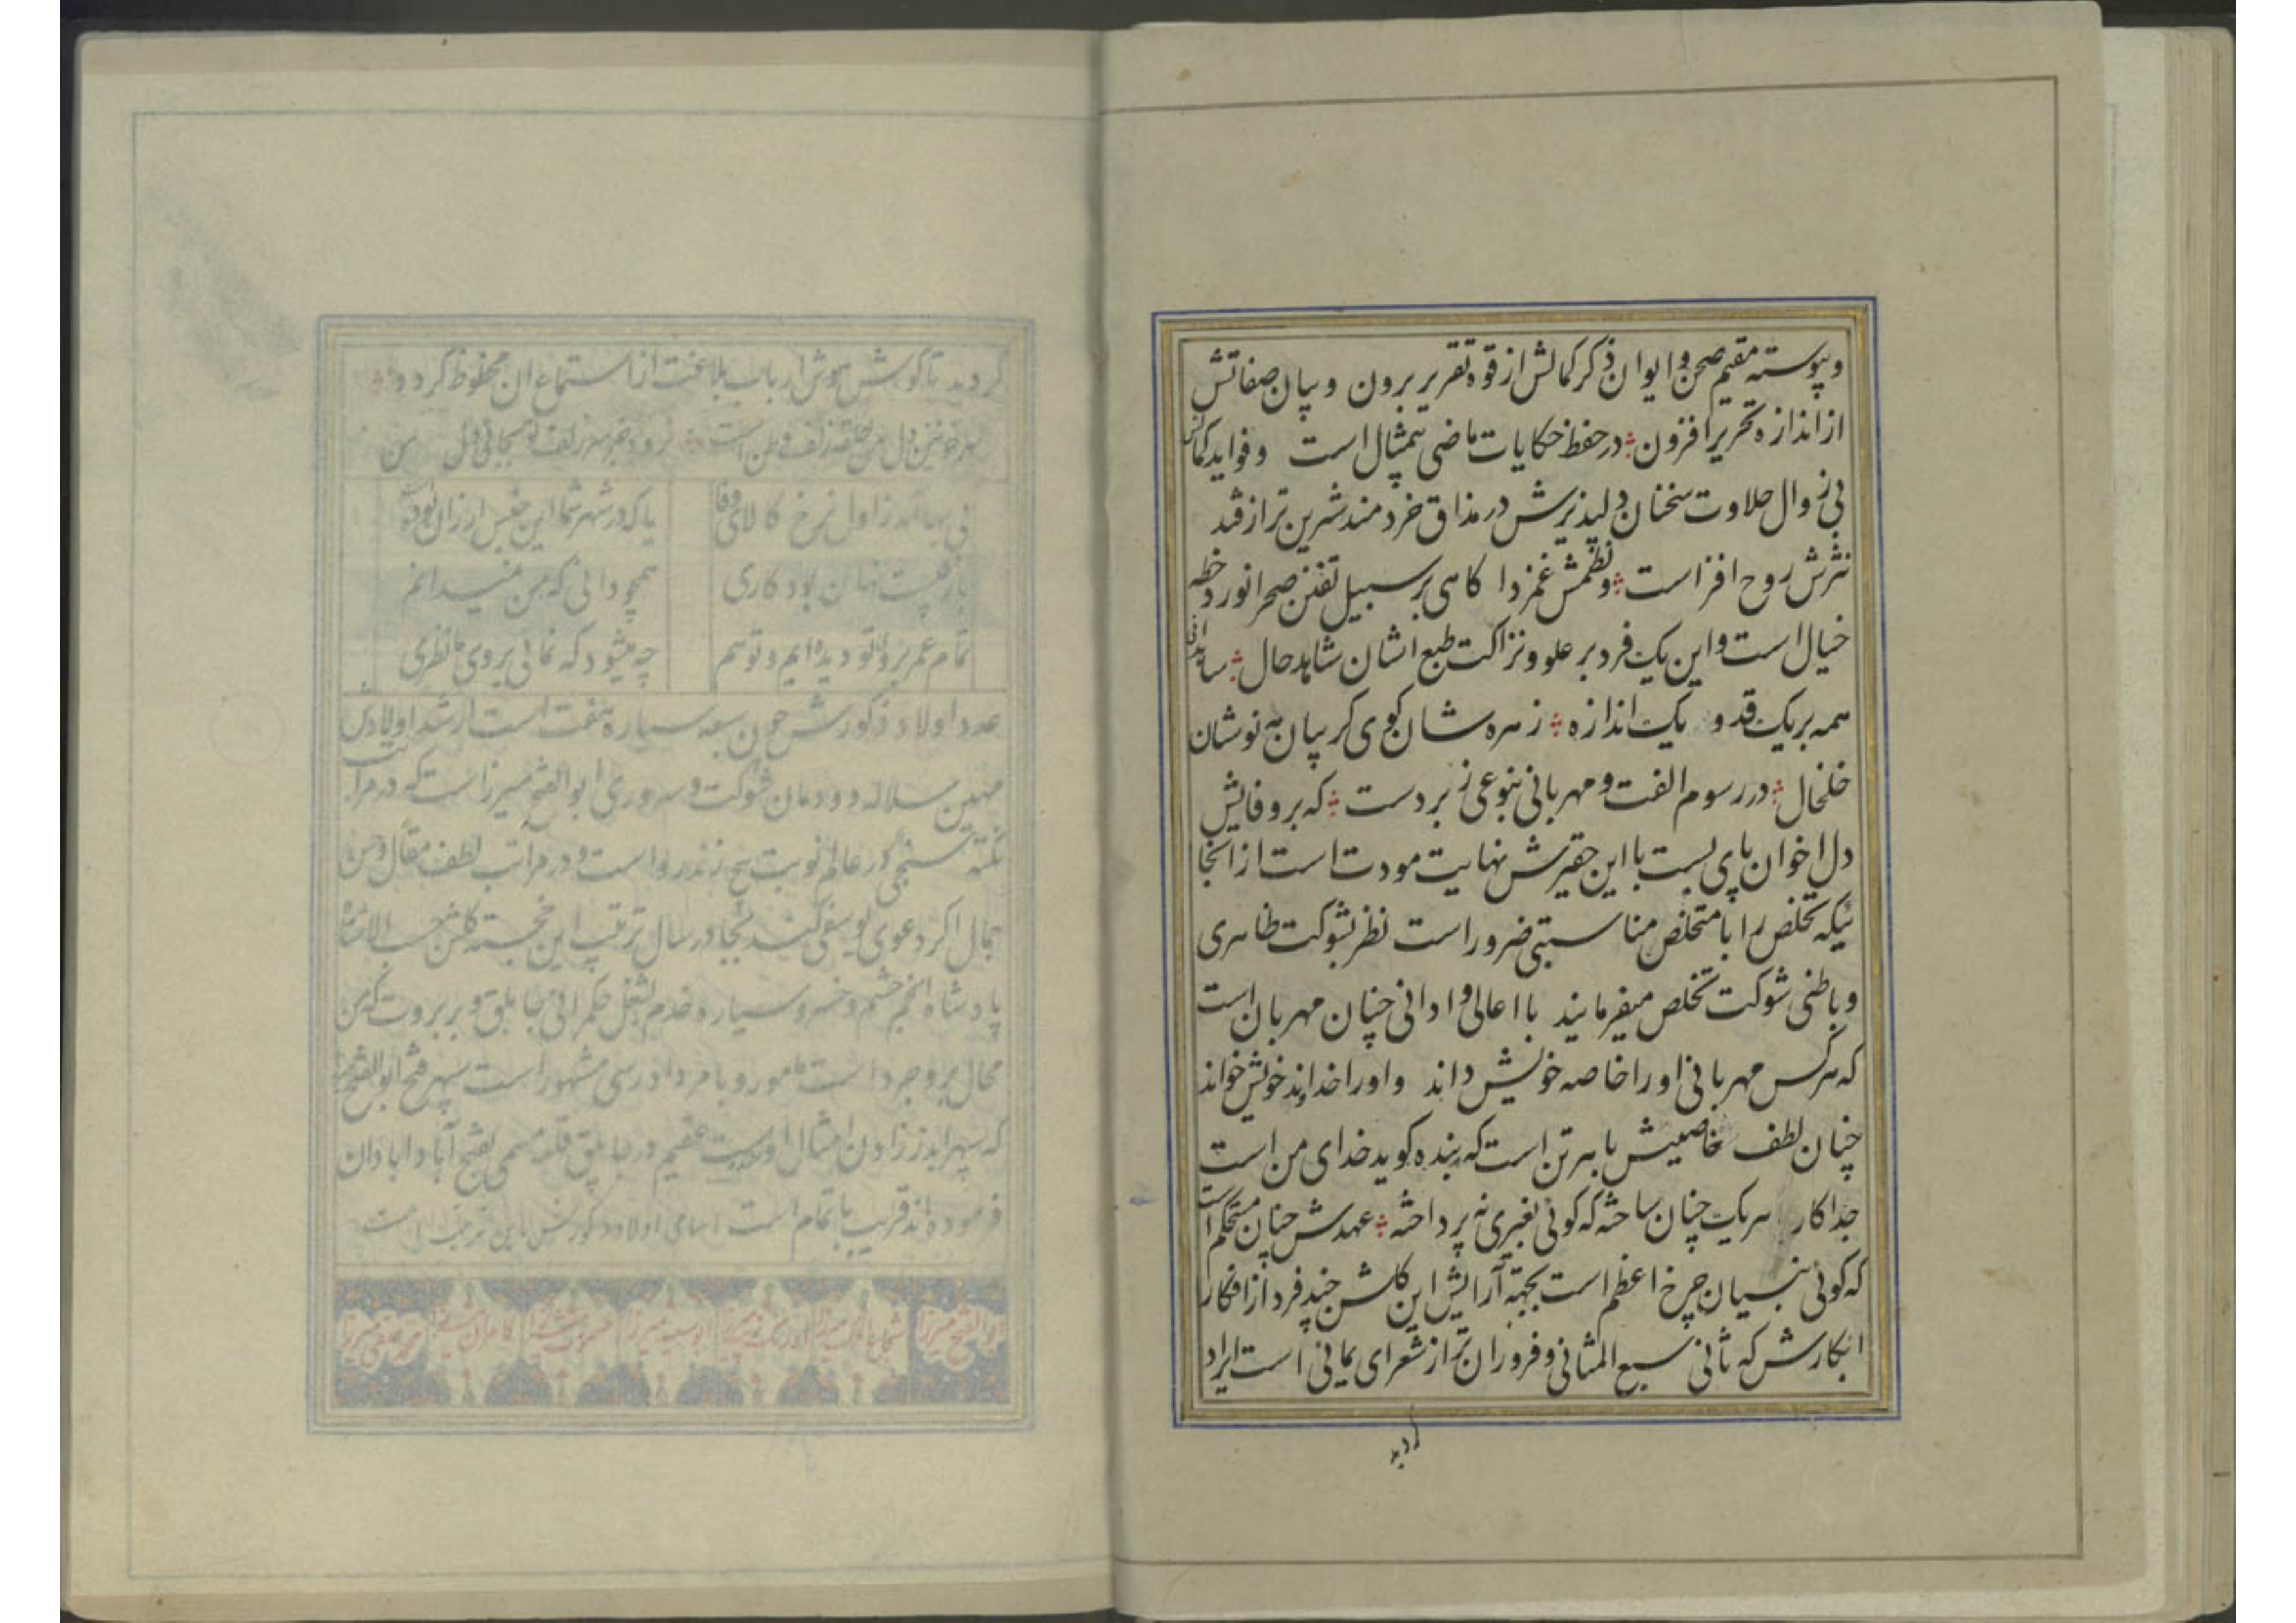 و پیوسته مقیم صحن و ایوان ذکر کمالش از قوه تقریر برون و بیان صفاتش
از اندازه تحریر افزون در حفظ حکایات ماضی بیمثال است و فواید کمالش
بی زوال حلاوت سخنان دلپذیرش در مذاق خردمند شرین تر از قند
نثرش روح افزاست و نظمش غمزدا کاهی بر سبیل تفنن صحرانورد خطه
خیال است و این یک فرد بر علو و نزاکت طبع اشان شاهد حال
همه بر یک قد و یک اندازه زهره شان کوی کریبان مه نوشان
خلخال در رسوم الفت و مهربانی بنوعی زبردست که بر وفایش
دل اخوان پای بست با این حقیرش نهایت مودت است از انجا
ئیکه تخلص را با متخلص مناسبتی ضرور است نظر بشوکت ظاهری
و باطنی شوکت تخلص میفرمایند با اعالی و ادانی چنان مهربان است
که هر کس مهربانی او را خاصه خویش داند و او را خداوند خویش خواند
چنان لطف خاصیش با هر تن است که هر بنده کوید خدای من است
جدا کار هر یک چنان ساخته که کوئی بغیری نه پرداخته عهدش چنان مستحکم است
که کوئی بنسیان چرخ اعظم است بجهته آرایش این کلشن چند فرد از افکار
ابکارش که ثانی سبع المثانی و فروزان تر از شعرای یمانی است ایراد
کردید
کردید تا کوش هوش ارباب بلاغت از استماع ان محظوظ کردد
یا که در شهر شما این جنس ارزان بوده
بازیت نهان بود کاری
همچو دانی که من نمیدانم
تمام عمر بروی تو دیده ایم و تو هم
چه میشود که نمائی بروی ما نظری
عدد اولاد ذکورش چون سبعه سیاره هفت است ارشد اولادش
مهین سلاله دودمان شوکت و سروری ابوالفتح میرزاست که در مراتب
نکته سنجی در عالم نوبت پنج زند رواست و در مراتب لطف مقال و حسن
جمال اکر دعوی یوسفی کند بجا در سال ترتیب این خجسته کلشن حسب الاشاره
پادشاه انجم حشم و خسرو سیاره خدم بشغل حکمرانی جاپلق و بربرود که من
محال بروجرد است مامور و بامر دادرسی مشهور است سپهر فتح ابوالفتح
که سپهر از زادن امثال اوست عقیم در جاپلق قلعه مسمی بفتح آباد ابادان
فرموده اند قریب باتمام است اسامی اولاد ذکورش باین ترتیب است
ابوالفتح میرزا شجاع الملک میرزا اورنک میرزا ابوسعید میرزا خسرو میرزا کامران میرزا محمد صفی میرزا